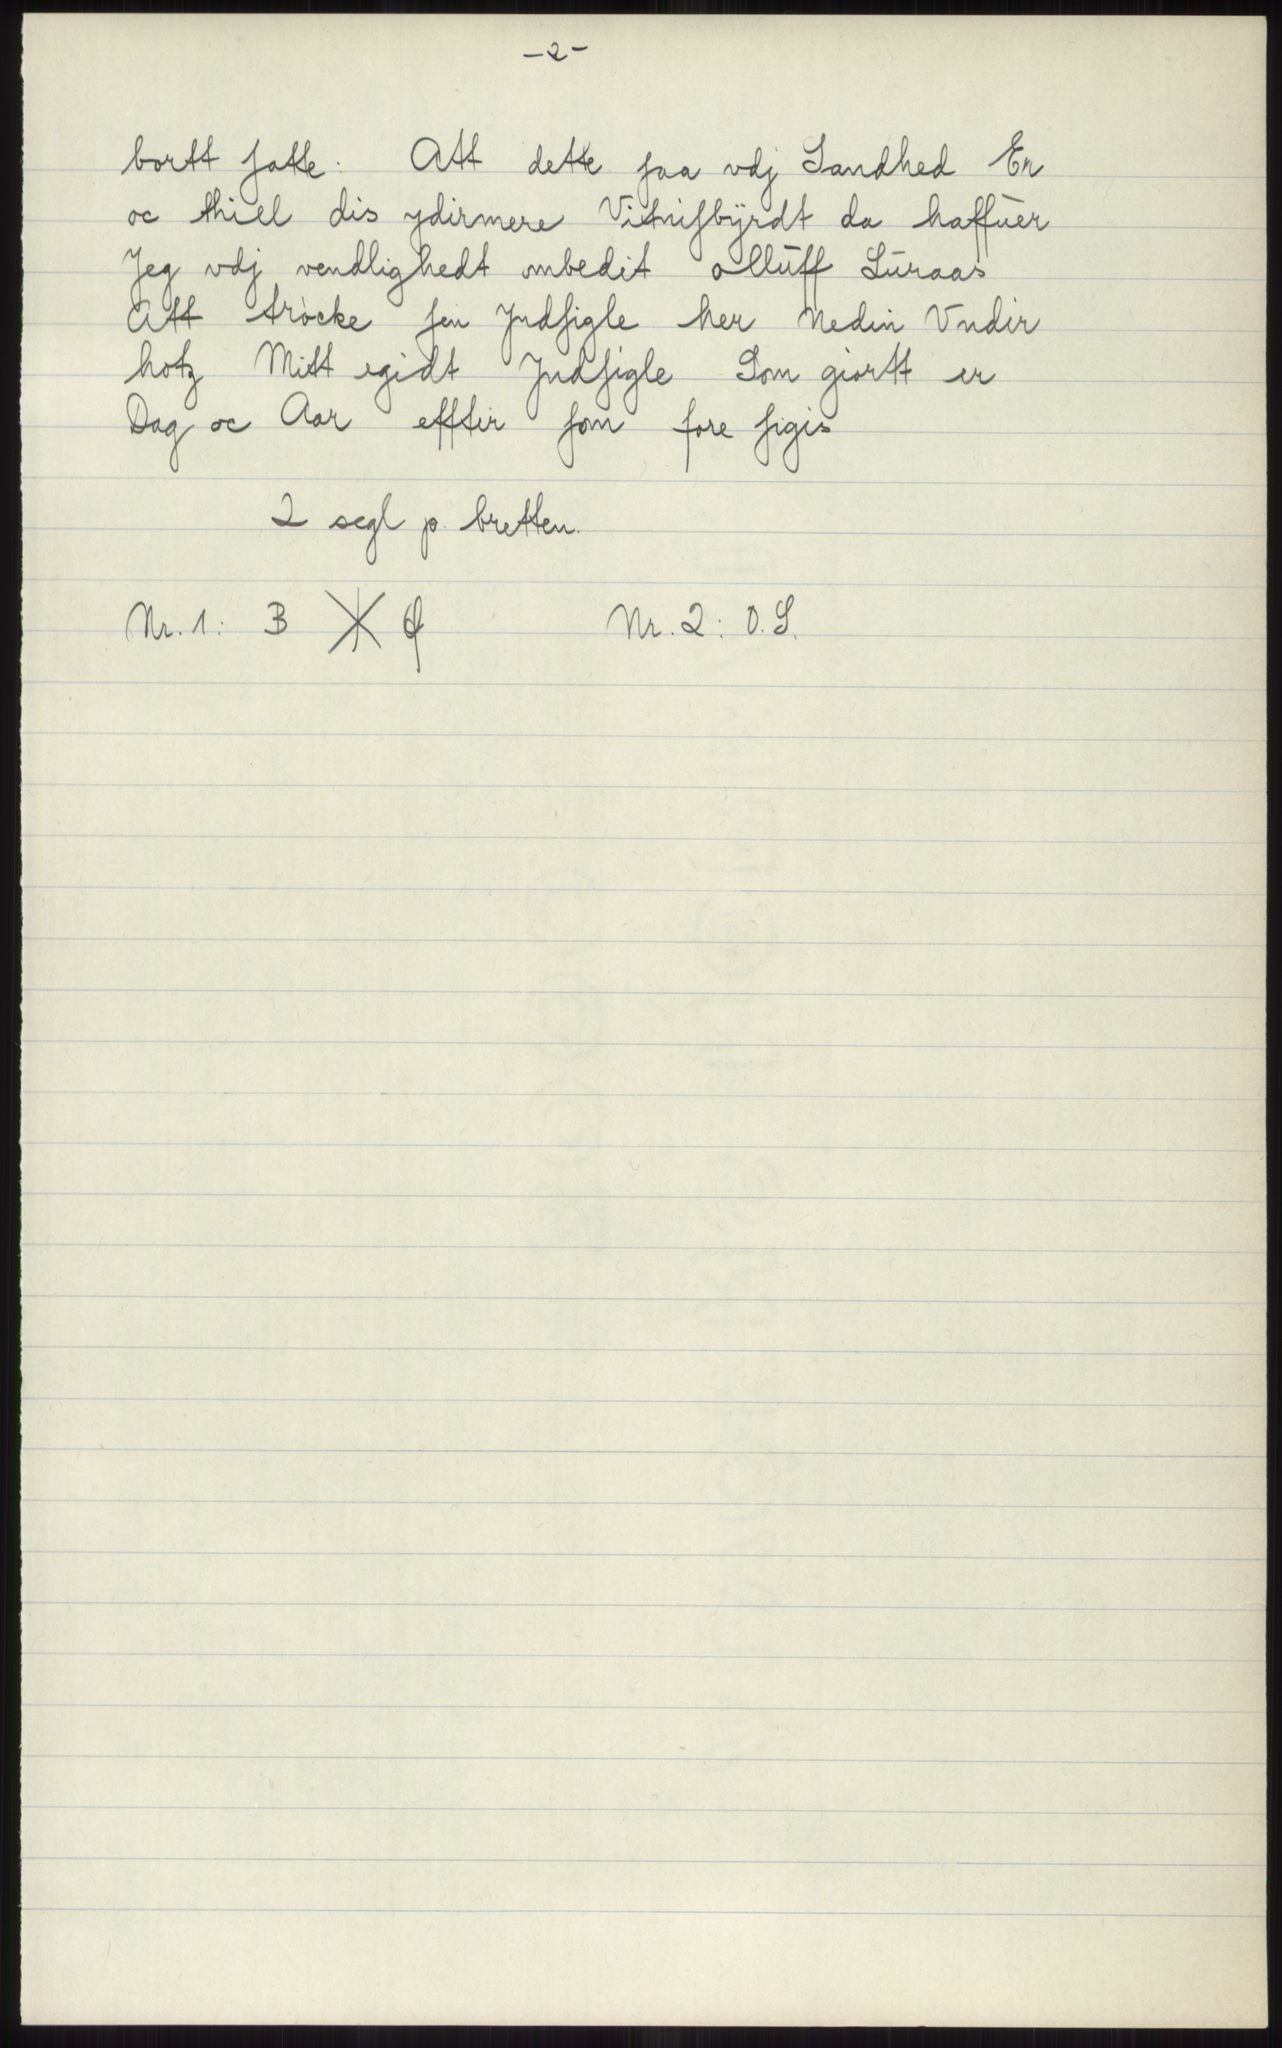 -2-
bortt ſatte: Att dette ſaa vdj Sandhed Er
oc thill dis ydirmere Vitniſbÿrdt da haffuer
Jeg vdj vendlighedt ombedit olluff Luraas
Att tröcke ſin Jndſigle her Nedin Vndir
hotz Mitt egidt Jndſigle Som giortt er
Dag oc Aar efftir ſom fore ſigis
2 segl p. bretten.
Nr. 1: B Nr. 2: O.S.